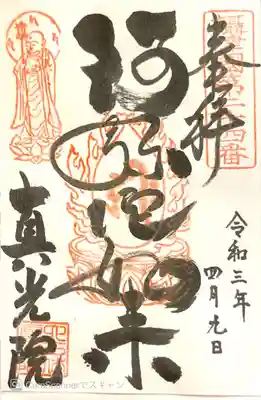 奉拝
令和三年
四月九日
阿弥陀如来
真光院
CamScannerでスキャン